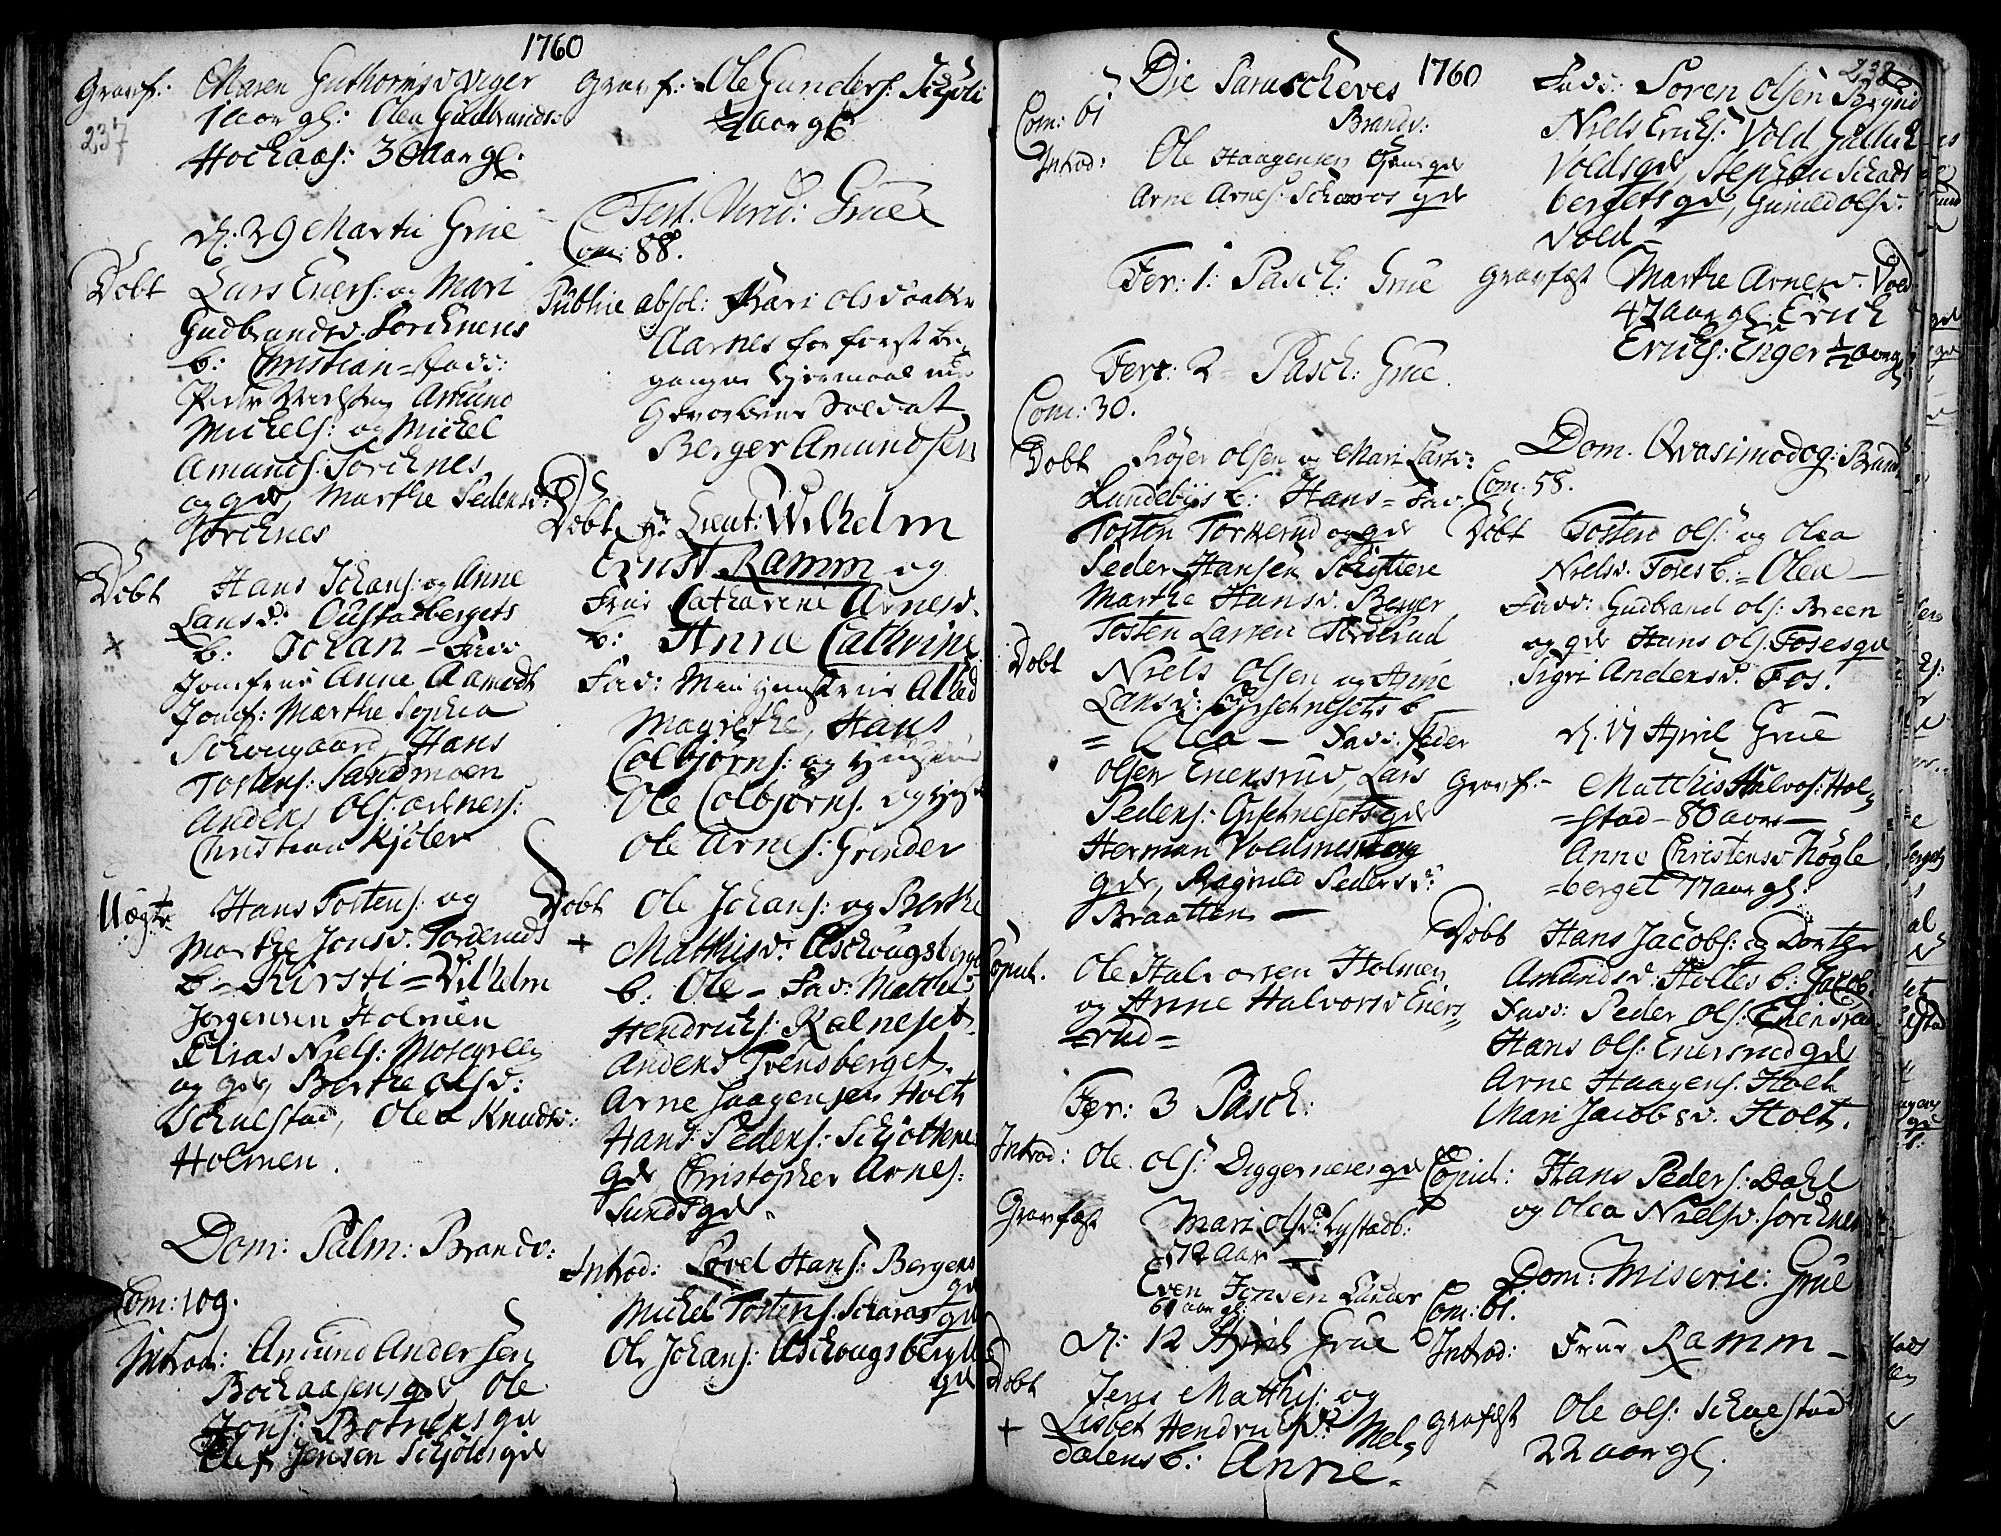 1760
Gravf: Maren Guthormsd Viger
237
1 aar gl: Olea Gudbrands:
Hockaas: 30 aar gl.
d. 29 Martii Grue
Døbt Lars Eners: og Mari
Gudbrandsd. Sorcknens
b: Christian = fadd:
Peder Amund
Michels: og Michel
Amunds: Sorcknes
og gde, Marthe Pedersd:
Sorcknes
Døbt Hans Johans: og Anne
Larsd: Oustadbergets
b: Johan - Fadd
Jomfrue Anne Aamodt
Jomf: Marthe Sophia
Schougaard, Hans
Tostens: Sandmoen
Anders Ols:
Christian Kjøler
Uægte Hans Tostens: og
Marthe Jonsd. Torderuds
b = Kirsti = Vilhelm
Jørgensen Holmen
Elias Niels: Mosegreen
og gde, Berthe Olsd:
Schulstad, Olea Knudsd:
Holmen.
Dom: Palm: Brandv:
Com: 109.
Introd: Amund Andersen
Bochaasens gde Ole
Jons: Botners gde
Ole Jensen Schjølds gde
Gravf: Ole Gunders: Schøli
½ aar gl
Fest. Virid: Grue
Com: 88.
Publice absol: Kari Olsdaatter
Aarnes for første be-
gangne Lejermaal med
Gevorbene Soldat
Berger Amundsen
Døbt Hr Lieut: Wilhelm
Ernst Ramm og
Frue Catharine Arnesd.
b: Anna Cathrine
Fad: Mad: Alhed
Magrethe, Hans
Colbjørns: og
Ole Colbjørns: og
Ole Arnes: Grinder
Døbt Ole Johans: og Berthe
Matthisd: Aschougsberge
b: Ole - Fad: Matthis
Hendrichs: Kalneset
Anders Tvensberget
Arne Haagensen Holt
Hans Peders: Schjøttene
gde, Christopher Arnes:
Sunds gde.
Introd: Povel Hans: Bergers
gde
Michel Tostens: Scharaas gde
Ole Johans: Aschougsbergets
gde
1760
Die Parascheves
Com: 61
Brandv:
Introd: Ole Haagensen gde
Arne Arnes: Scharaas gde
Fer: 1: Pasch: Grue
Fer: 2 Pasch: Grue.
Com: 30.
Døbt Røjer Olsen og Mari Larsd:
Lundebyes b: Hans = Fad:
Tosten Torkerud og gde
Peder Hansen Schjøttene
Marthe Hansd. Berger
Tosten Larsen Torderud
Døbt Niels Olsen og Anne
Larsd: Gjschnesets b
= Olea - Fad: Peder
Olsen Enersrud, Lars
Peders: Gjschnesets gde
Herman Voldmesterens
gde, Ragnild Pedersd:
Braatten -
Copul. Ole Halvorsen Holmen
og Anne Halvorsd Eners-
rud =
Fer: 3 Pasch:
Introd: Ole Ols: Diggernes gde
Gravfæst Mari Olsd: Lystadb:
72 aar
Even Jonsen Lunder
60 aar gl:
d: 12 April Grue
Døbt Jens Matthis: og
Lisbet Hendrichsd: Mel-
dalens b: Anne.
238
Fadd: Søren Olsen
Niels Erichs: Vold Gullich
Volds gde, Stephen Schads
bergets gde, Gunild Olsd.
Vold
Gravfæst Marthe Arnesd Vold
47 aar gl. Erich
Erichs: Enger ½ aar gl
Dom. Qvasimodog: Brand
Com: 58.
Døbt Tosten Ols: og Olea
Nielsd. Foses b: = Olea -
Fadd: Gudbrand Ols: Breen
og gde Hans Ols: Foses gde
Sigri Andersd: Fos.
d. 17 April Grue
Gravf: Matthis Halvors: Hol-
=stad - 80 aar -
Anne Christensd Nøgle
=berget 77 aar gl.
Døbt Hans Jacobs: og Dorthe
Amundsd. Holtes b: Jacob
Fadd: Peder Ols: Enersrud
Hans Ols: Enersrud gde
Arne Haagens: Holt
Mari Jacobsd. Holt.
Copul: Hans Peders: Dahl
og Olea Nielsd. Sorcknes
Dom: Miseric: Grue
Com: 61.
Introd: Frue Ramm -
Gravfæst Ole Ols: Schulstad
22 aar gl.